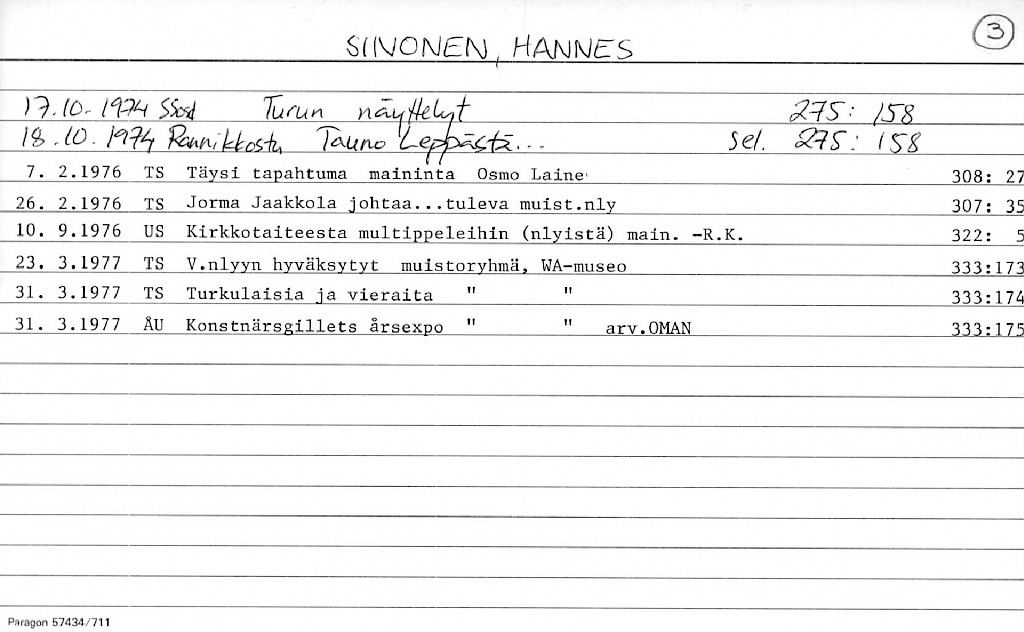 SIIVONEN, HANNES
3
17.10.1974 SSosd Turun näyttelyt 275:158
18.10.1974 Rannikkostu Tauno Leppästä... sel. 275:158
7. 2.1976 TS Täysi tapahtuma maininta Osmo Laine 308: 27
26. 2.1976 TS Jorma Jaakkola johtaa...tuleva muist.nly 307: 35
10. 9.1976 US Kirkkotaiteesta multippeleihin (nlyistä) main. -R.K. 322: 5
23. 3.1977 TS V.nlyyn hyväksytyt muistoryhmä, WA-museo 333:173
31. 3.1977 TS Turkulaisia ja vieraita " " 333:174
31. 3.1977 ÅU Konstnärsgillets årsexpo " " arv.OMAN 333:175
Paragon 57434/711